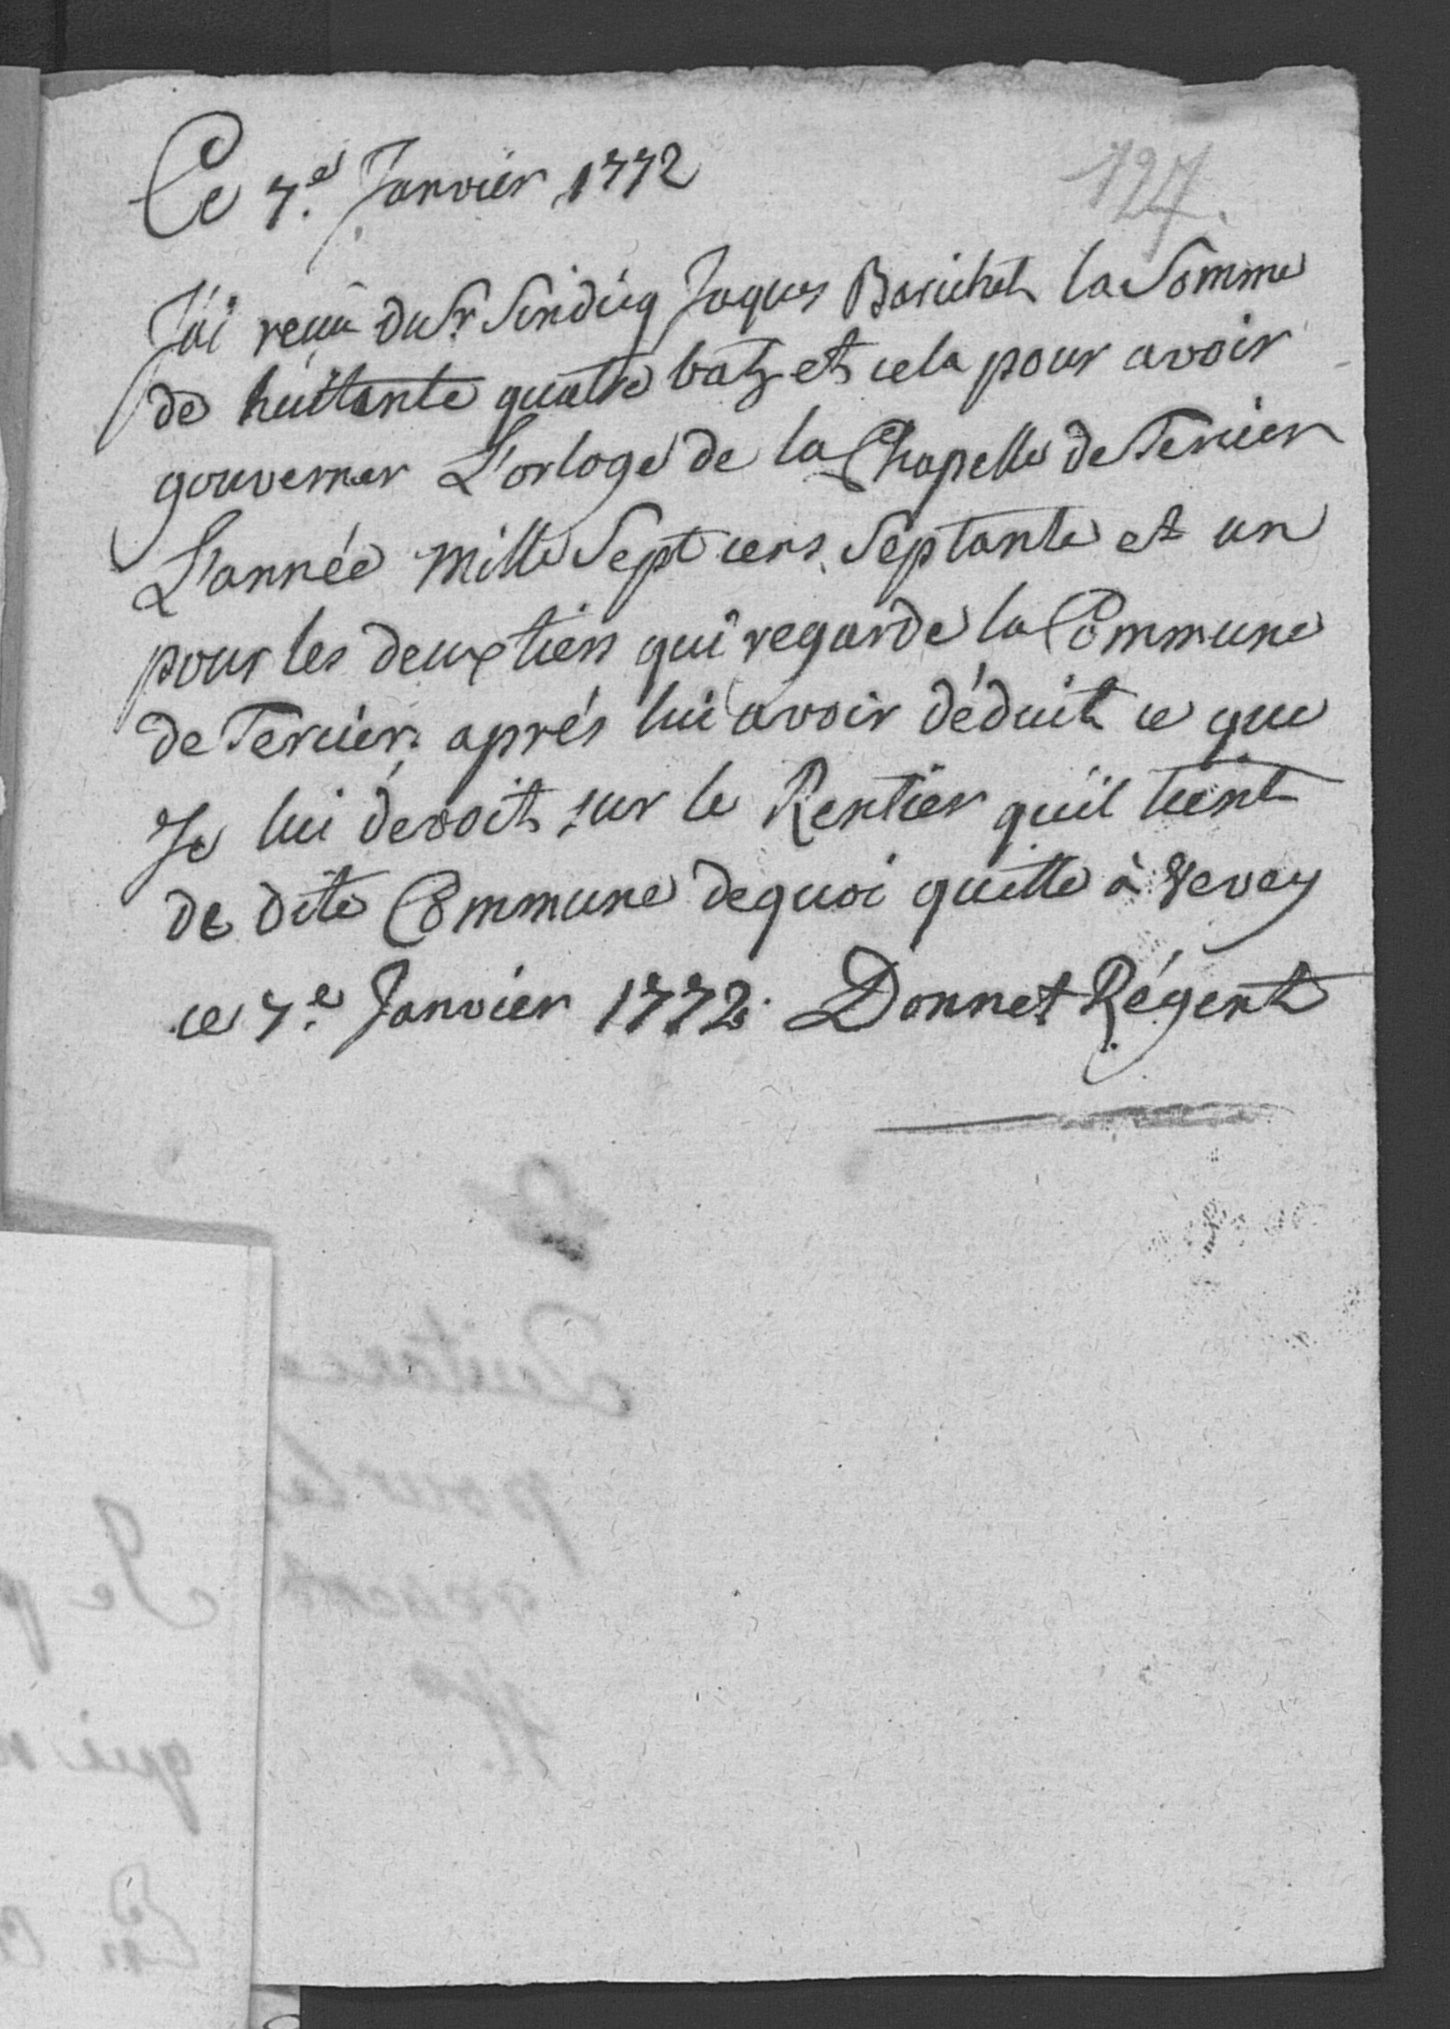 Ce 7.e Janvier 1772
127.
J'ai reçû du Sr Sindicq Jaques Borichet la Somme
de huittante quatre batz et cela pour avoir
gouverner L'orloge de la Chapelle de Tercier
L'année Mille Sept cens Septante et un
pour les deux tiers qui regarde la Commune
de Tercier. aprés lui avoir déduit ce que
Je lui devoit sur le Rentier qu'il tient
de dite Commune de quoi quitte à Vevey
ce 7.e Janvier 1772. Donnet Régent
Quitance
pour le
Je p
qui